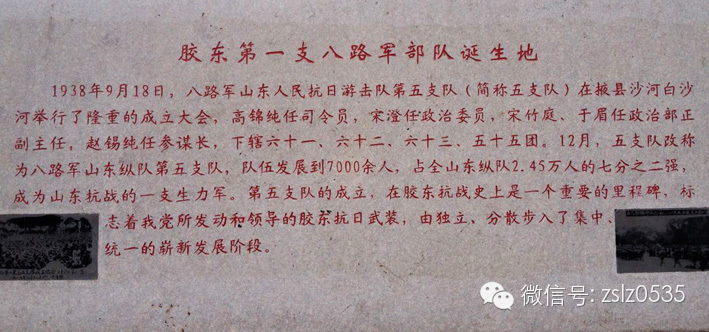 胶东第一支八路军部队诞生地
1938年9月18日，八路军山东人民抗日游击队第五支队（简称五支队）在掖县沙河白沙
河举行了隆重的成立大会，高锦纯任司令员，宋澄任政治委员，宋竹庭、于眉任政治部正
副主任，赵锡纯任参谋长，下辖六十一、六十二、六十三、五十五团。12月，五支队改称
为八路军山东纵队第五支队，队伍发展到7000余人，占全山东纵队2.45万人的七分之二强，
成为山东抗战的一支生力军。第五支队的成立，在胶东抗战史上是一个重要的里程碑，标
志着我党所发动和领导的胶东抗日武装，由独立、分散步入了集中、
统一的崭新发展阶段。
微信号: zslz0535